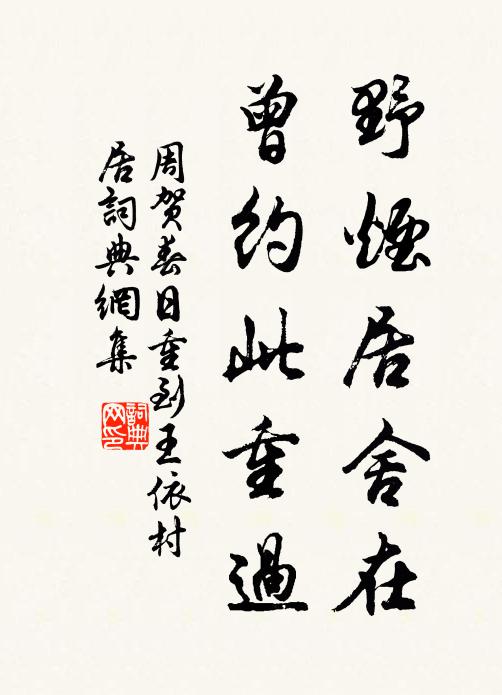 野煙居舍在
曾約此重過
周賀春日重到王依村
居詞典網集
詞典
网印